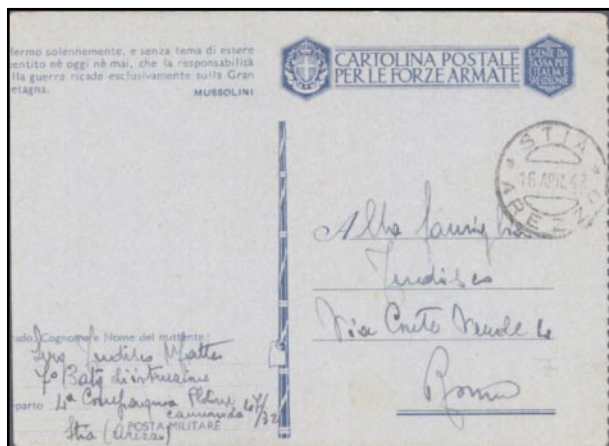 fermo solennemente, e senza tema di essere
entito nè oggi nè mai, che la responsabilità
lla guerra ricade esclusivamente sulla Gran
etagna.
MUSSOLINI
CARTOLINA POSTALE
PER LE FORZE ARMATE
ESENTE DA
TASSA PER
L'ITALIA E
SPEDIZIONE
STIA
16 APR. 42
AREZZO
Alla famiglia
Iudisco
Via Croce Verde 4
Roma
rado, Cognome e Nome del mittente:
Iudisco Matteo
Batg d'istruzione
eparto 4ª Compagnia
47/32
Stia (Arezzo) POSTA MILITARE